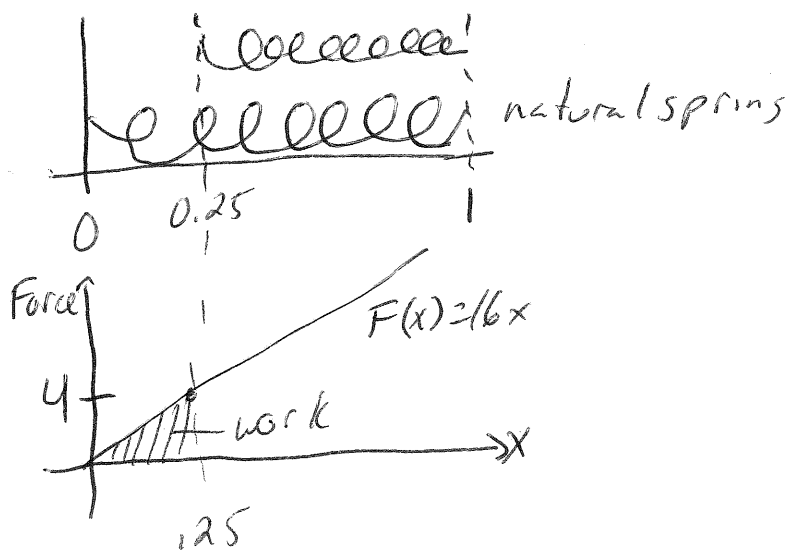 natural spring
0 0.25 1
Force
F(x)=16x
4
work
x
.25